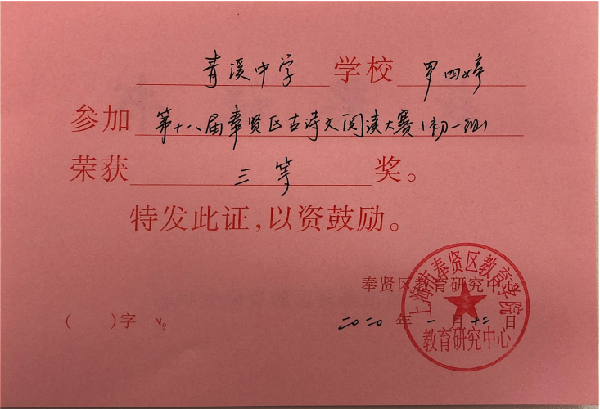 青溪中学 学校 罗四婷
参加 第十八届奉贤区古诗文阅读大赛(初一组)
荣获 三等 奖。
特发此证,以资鼓励。
奉贤区教育研究中心
( )字 №
二〇二〇年一月十二日
上海市奉贤区教育学院
教育研究中心